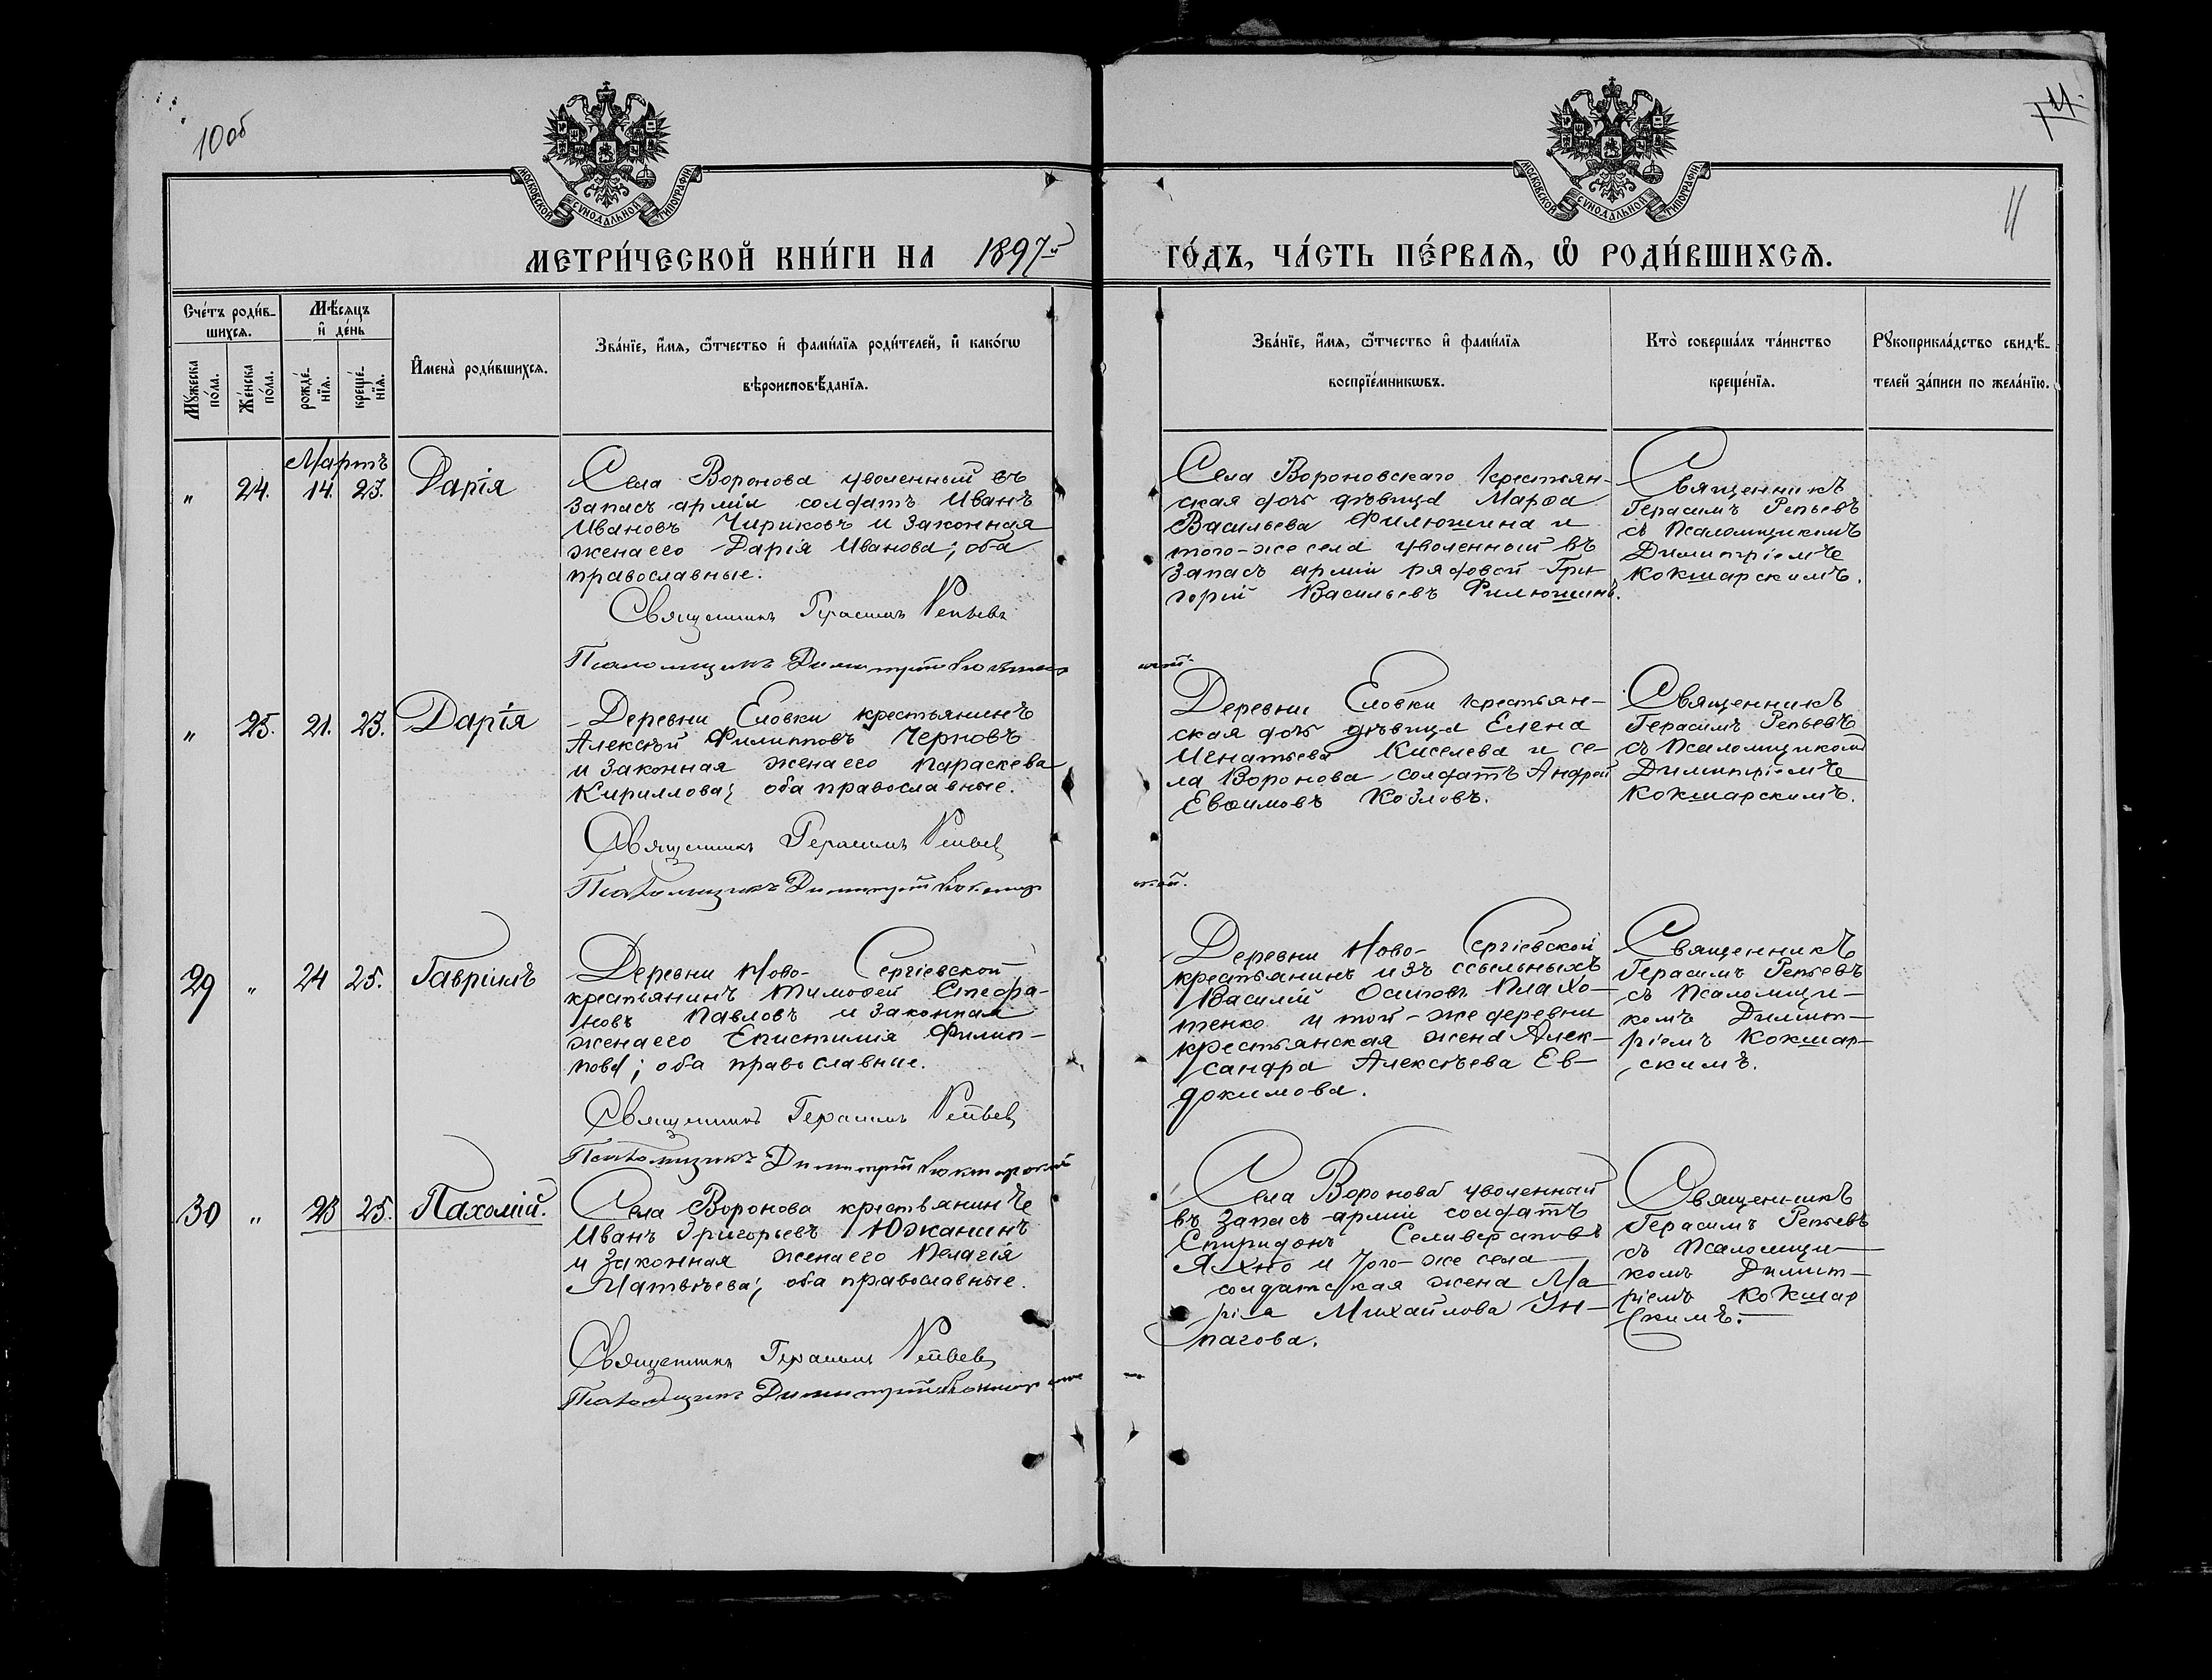 10 об
11.
11
МОСКОВСКОЙ СѴНОДАЛЬНОЙ ТИПОГРАФІИ
МОСКОВСКОЙ СѴНОДАЛЬНОЙ ТИПОГРАФІИ
МЕТРИ́ЧЕСКОЙ КНИ́ГИ НА 1897й ГО́ДЪ, ЧА́СТЬ ПЕ́РВАѦ, Ѡ҆ РОДИ́ВШИХСѦ.
Сче́тъ роди́в-
шихсѧ.
Мꙋ́жеска по́ла.
Же́нска по́ла.
Мѣ́сѧцъ
и҆ де́нь
рожде́-
нїѧ.
креще́-
нїѧ.
И҆мена̀ роди́вшихсѧ.
Зва́нїе, и҆́мѧ, ѻ҆́тчество и҆ фами́лїѧ роди́телей, и҆ како́гѡ
вѣроисповѣ́данїѧ.
Зва́нїе, и҆́мѧ, ѻ҆́тчество и҆ фами́лїѧ
воспрїе́мникѡвъ.
Кто̀ соверша́лъ та́инство
креще́нїѧ.
Рꙋкоприкла́дство свидѣ́-
телей за́писи по жела́нїю.
Мартъ
" 24. 14. 23. Дарія
Села Воронова уволенный въ
запасъ арміи солдатъ Иванъ
Ивановъ Чириковъ и законная
жена его Дарія Иванова; оба
православные.
Священникъ Герасимъ Репьевъ
Псаломщикъ Димитрій Кокшарскій
Села Вороновскаго крестьян-
ская дочь дѣвица Марѳа
Васильева Филюшина и
того-же села уволенный въ
запасъ арміи рядовой Гри-
горій Васильевъ Филюшинъ.
Священникъ
Герасимъ Репьевъ
съ псаломщикомъ
Димитріемъ
Кокшарскимъ.
" 25. 21. 23. Дарія
Деревни Еловки крестьянинъ
Алексѣй Филипповъ Черновъ
и законная жена его Параскева
Кириллова; оба православные.
Священникъ Герасимъ Репьевъ
Псаломщикъ Димитрій Кокшарскій
Деревни Еловки крестьян-
ская дочь дѣвица Елена
Игнатьева Киселева и се-
ла Воронова солдатъ Андрей
Евѳимовъ Козловъ.
Священникъ
Герасимъ Репьевъ
съ псаломщикомъ
Димитріемъ
Кокшарскимъ.
29 " 24 25. Гавріилъ
Деревни Ново-Сергіевской
крестьянинъ Тимоѳей Стефа-
новъ Павловъ и законная
жена его Епистимія Филип-
пова; оба православные.
Священникъ Герасимъ Репьевъ
Псаломщикъ Димитрій Кокшарскій
Деревни Ново-Сергіевской
крестьянинъ изъ ссыльныхъ
Василій Осиповъ Плахо-
тенко и той-же деревни
крестьянская жена Алек-
сандра Алексѣева Ев-
докимова.
Священникъ
Герасимъ Репьевъ
съ псаломщи-
комъ Димит-
ріемъ Кокшар-
скимъ.
30 " 23 25. Пахомій.
Села Воронова крестьянинъ
Иванъ Григорьевъ Южанинъ
и законная жена его Пелагія
Матвѣева; оба православные.
Священникъ Герасимъ Репьевъ
Псаломщикъ Димитрій Кокшарскій
Села Воронова уволенный
въ запасъ арміи солдатъ
Спиридонъ Селиверстовъ
Яхно и того-же села
солдатская жена Ма
рія Михайлова
Священникъ
Герасимъ Репьевъ
съ псаломщи-
комъ Димит-
ріемъ Кокшар
скимъ.